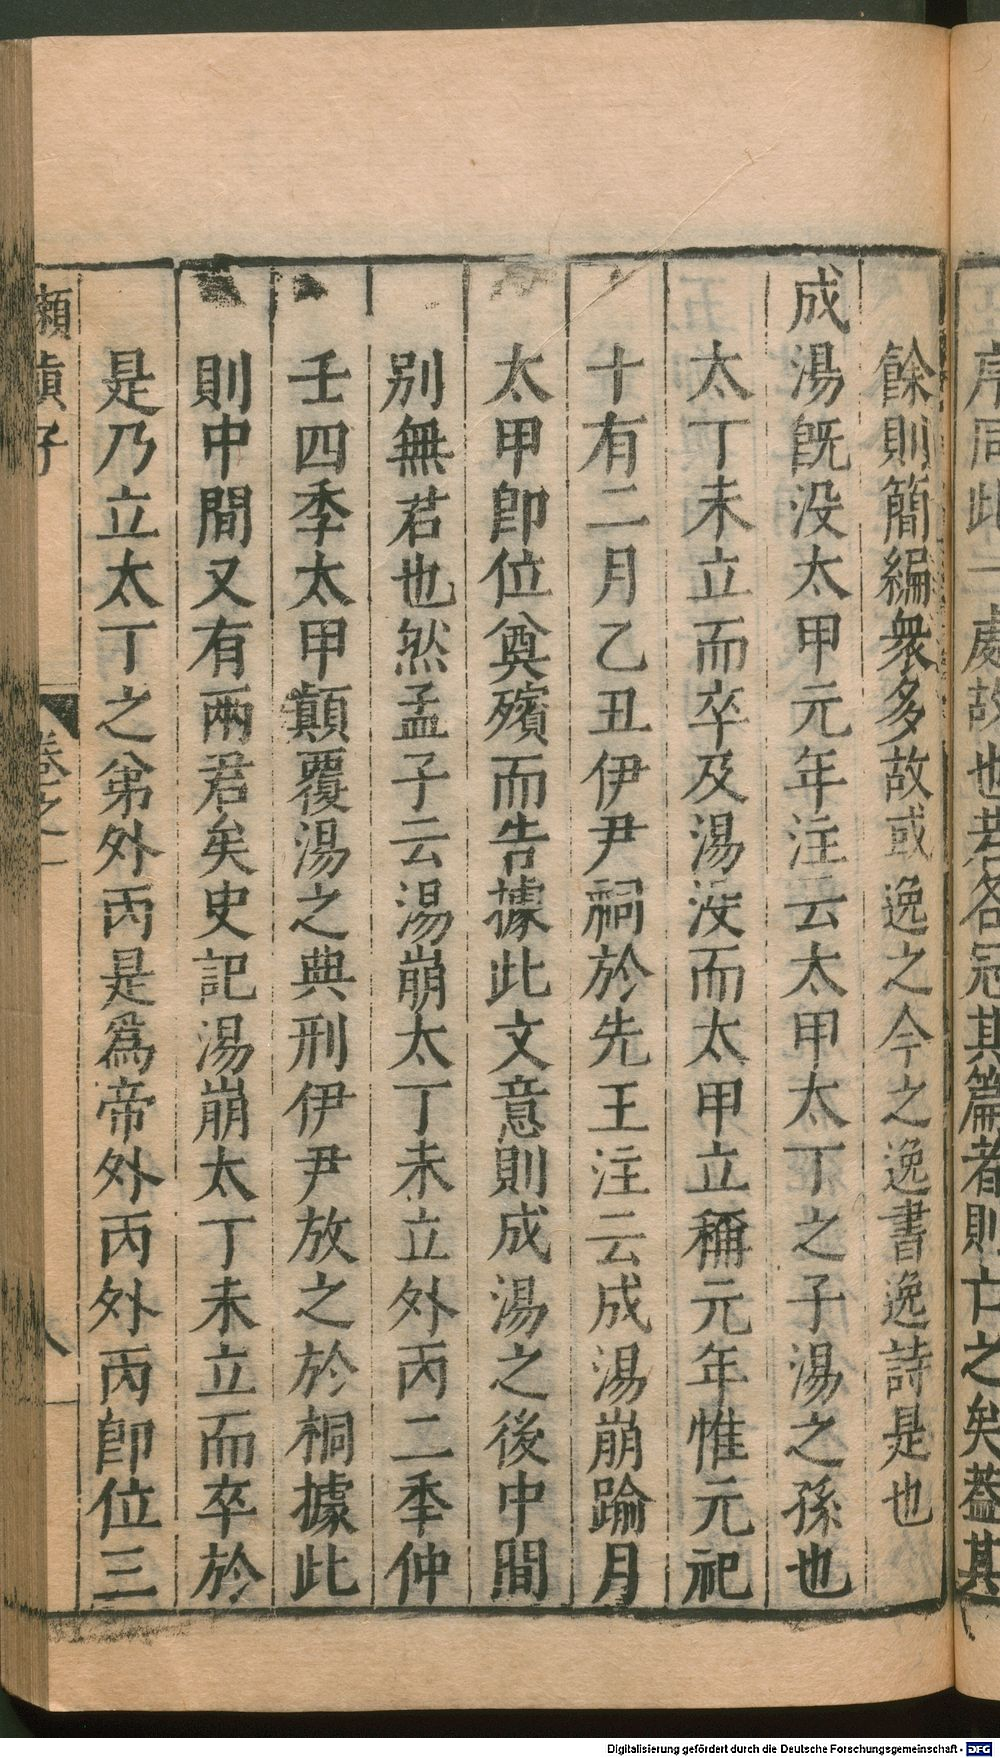 序同此二處故也若各冠其篇者則亡之矣蓋其
餘則簡編衆多故或逸之今之逸書逸詩是也
成湯旣没太甲元年注云太甲太丁之子湯之孫也
太丁未立而卒及湯没而太甲立稱元年惟元祀
十有二月乙丑伊尹祠於先王注云成湯崩踰月
太甲卽位奠殯而告據此文意則成湯之後中間
别無君也然孟子云湯崩太丁未立外丙二季仲
壬四季太甲顛覆湯之典刑伊尹放之於桐據此
則中間又有兩君矣史記湯崩太丁未立而卒於
是乃立太丁之弟外丙是爲帝外丙外丙卽位三
嬾真子 卷之一 八
Digitalisierung gefördert durch die Deutsche Forschungsgemeinschaft - DFG